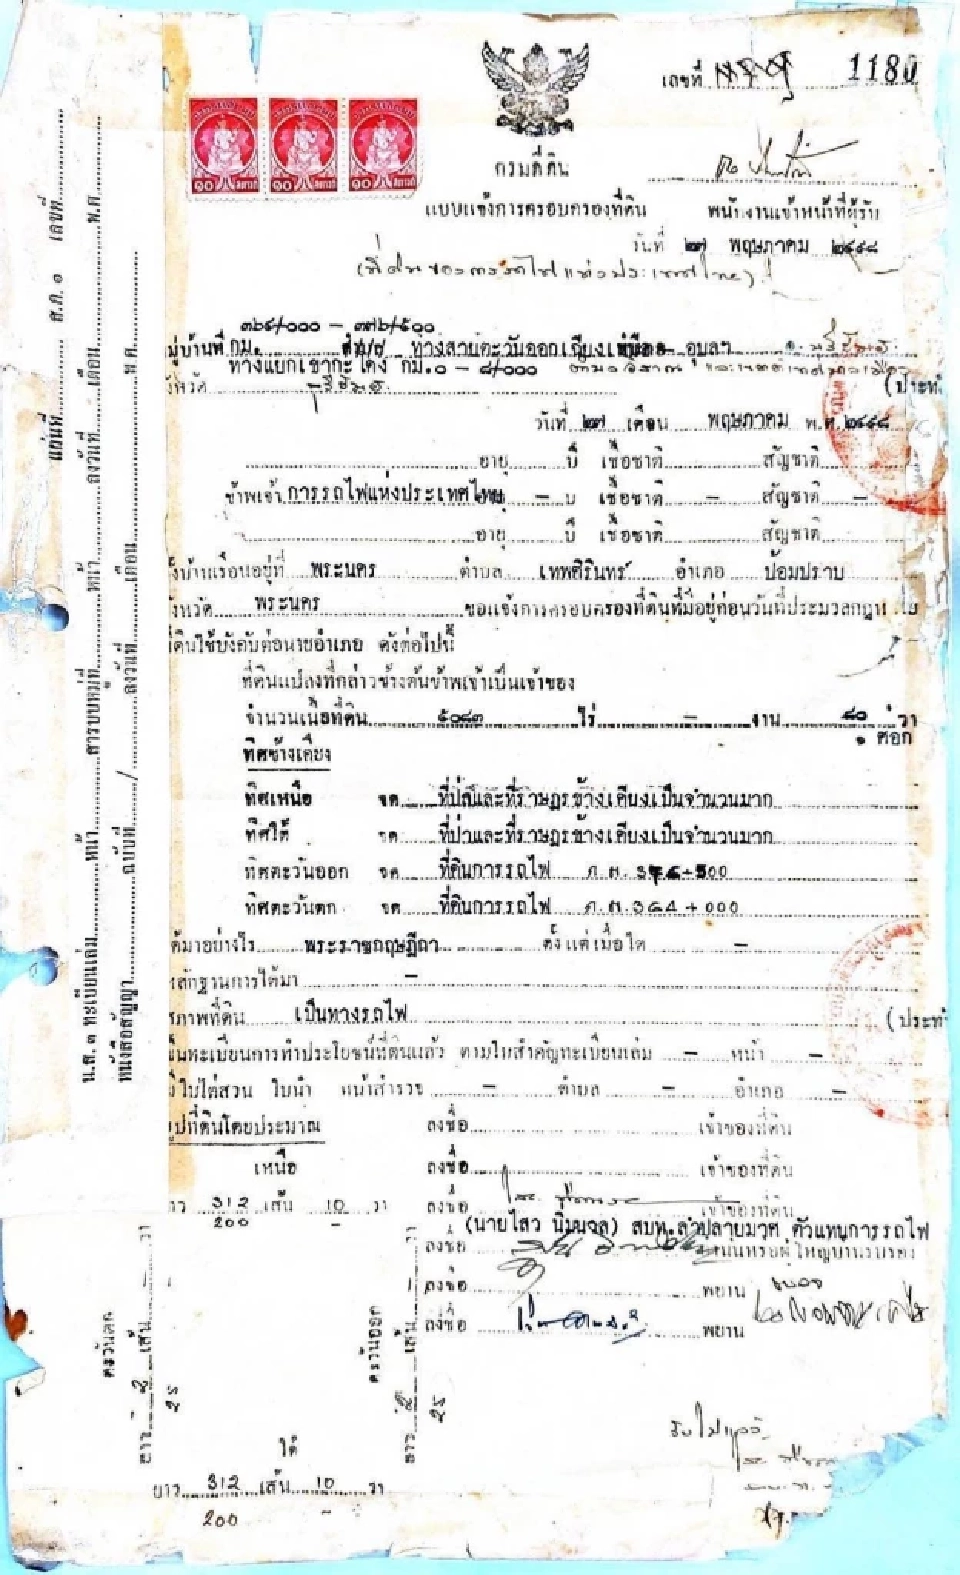 เลขที่ 1180
กรมที่ดิน
แบบแจ้งการครอบครองที่ดิน พนักงานเจ้าหน้าที่ผู้รับ
วันที่ ๒๗ พฤษภาคม ๒๔๙๘
(ที่ดินของการรถไฟแห่งประเทศไทย)
๓๖๔/๐๐๐ – ๓๗๖/๕๐๐
หมู่บ้านที่ กม. ทางสายตะวันออกเฉียงเหนือ อุบลฯ
ทางแยกเขากะโดง กม. ๐ – ๘/๐๐๐
จังหวัด บุรีรัมย์
(ประทับ
วันที่ ๒๗ เดือน พฤษภาคม พ.ศ. ๒๔๙๘
อายุ ปี เชื้อชาติ สัญชาติ
ข้าพเจ้า การรถไฟแห่งประเทศไทย – ปี เชื้อชาติ – สัญชาติ –
อายุ ปี เชื้อชาติ สัญชาติ
ตั้งบ้านเรือนอยู่ที่ พระนคร ตำบล เทพศิรินทร์ อำเภอ ป้อมปราบ
จังหวัด พระนคร ขอแจ้งการครอบครองที่ดินที่มีอยู่ก่อนวันที่ประมวลกฎหมาย
ที่ดินใช้บังคับต่อนายอำเภอ ดังต่อไปนี้
ที่ดินแปลงที่กล่าวข้างต้นข้าพเจ้าเป็นเจ้าของ
จำนวนเนื้อที่ดิน ๕๐๘๓ ไร่ – งาน ๘๐ วา
๑ ศอก
ทิศข้างเคียง
ทิศเหนือ จด ที่ป่าและที่ราษฎรข้างเคียงเป็นจำนวนมาก
ทิศใต้ จด ที่ป่าและที่ราษฎรข้างเคียงเป็นจำนวนมาก
ทิศตะวันออก จด ที่ดินการรถไฟ ก.ม. 376+500
ทิศตะวันตก จด ที่ดินการรถไฟ ก.ม. 364+000
ได้มาอย่างไร พระราชกฤษฎีกา ตั้งแต่เมื่อใด –
หลักฐานการได้มา –
สภาพที่ดิน เป็นทางรถไฟ (ประทับ
ขึ้นทะเบียนการทำประโยชน์ที่ดินแล้ว ตามใบสำคัญทะเบียนเล่ม – หน้า –
มีใบไต่สวน ใบนำ หน้าสำรวจ – ตำบล – อำเภอ –
รูปที่ดินโดยประมาณ ลงชื่อ เจ้าของที่ดิน
เหนือ ลงชื่อ เจ้าของที่ดิน
ยาว 312 เส้น 10 วา ลงชื่อ เจ้าของที่ดิน
200 –
(นายไสว นิ่มนวล) สบท.ลำปลายมาศ ตัวแทนการรถไฟ
ลงชื่อ กำนันหรือผู้ใหญ่บ้านรับรอง
ลงชื่อ พยาน
ลงชื่อ พยาน
ตะวันตก
ยาว 2 เส้น – วา
25
ตะวันออก
ยาว 2 เส้น – วา
25
ใต้
ยาว 312 เส้น 10 วา
200 –
รับไปแล้ว
แผ่นที่ ส.ค. ๑ เลขที่
น.ส. ๓ ทะเบียนเล่ม หน้า สารบบหมู่ที่ หน้า ลงวันที่ เดือน พ.ศ.
หนังสือสัญญา ฉบับที่ / ลงวันที่ เดือน พ.ศ.